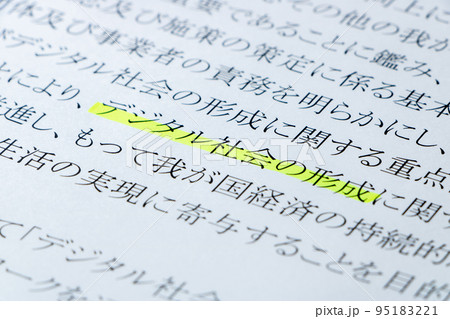 要であることに鑑み、
及び施策の策定に係る基本
体及び事業者の責務を明らかにし、
デジタル社会の形成に関する重点
とにより、デジタル社会の形成に関す
進し、もって我が国経済の持続的
生活の実現に寄与することを目的
て「デジタル社会
pixta.jp - 95183221